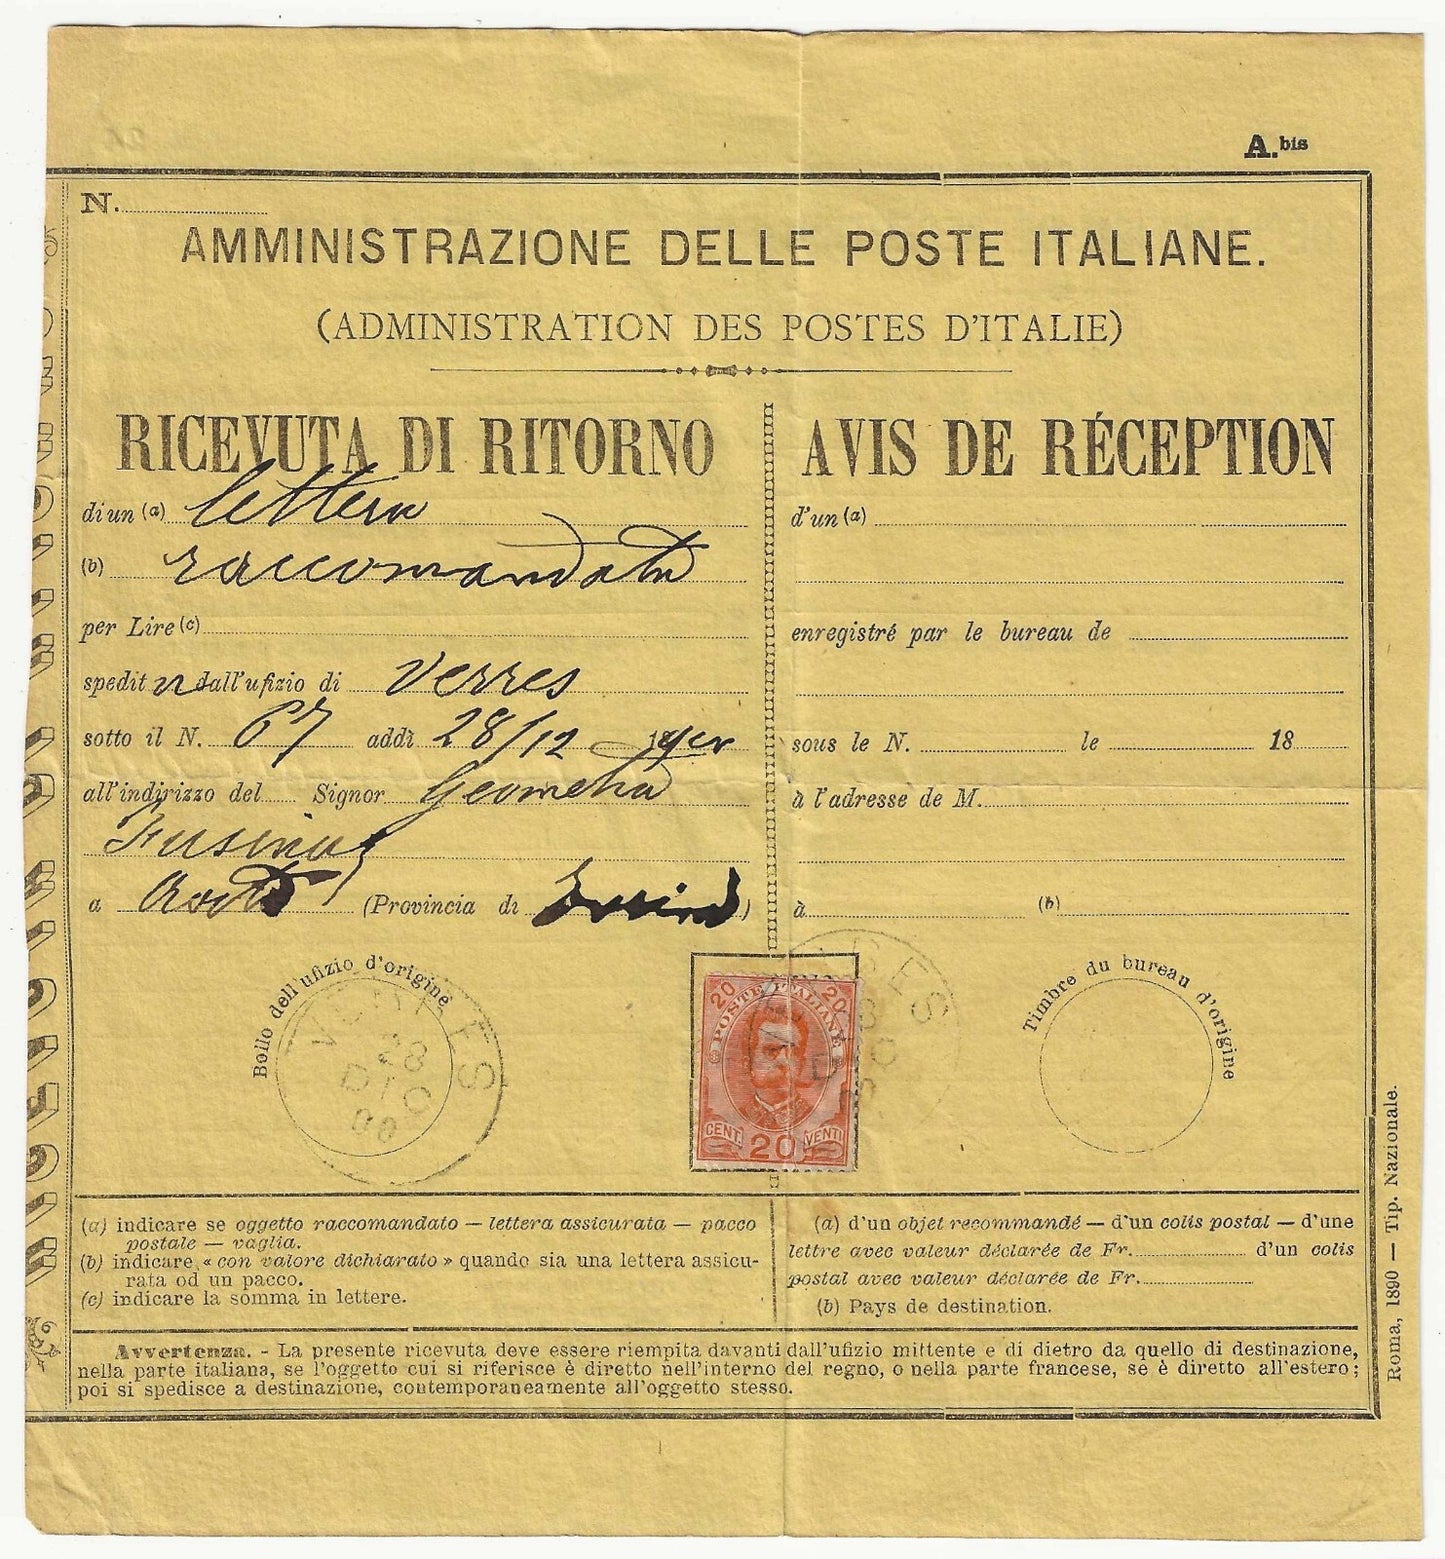 A.bis
N.
AMMINISTRAZIONE DELLE POSTE ITALIANE.
(ADMINISTRATION DES POSTES D'ITALIE)
RICEVUTA DI RITORNO
di un (a) lettera
(b) raccomandata
per Lire (c)
spedit a dall'ufizio di Verres
sotto il N. 67 addì 28/12
all'indirizzo del Signor Geometra
Fusinaz
a Aosta (Provincia di Torino)
Bollo dell'ufizio d'origine
VERRES
28
DIC
00
POSTE ITALIANE
20 20
CENT. 20 VENTI
AVIS DE RÉCEPTION
d'un (a)
enregistré par le bureau de
sous le N. le 18
à l'adresse de M.
à (b)
Timbre du bureau d'origine
(a) indicare se oggetto raccomandato — lettera assicurata — pacco
postale — vaglia.
(b) indicare « con valore dichiarato » quando sia una lettera assicu-
rata od un pacco.
(c) indicare la somma in lettere.
(a) d'un objet recommandé — d'un colis postal — d'une
lettre avec valeur déclarée de Fr. d'un colis
postal avec valeur déclarée de Fr.
(b) Pays de destination.
Avvertenza. - La presente ricevuta deve essere riempita davanti dall'ufizio mittente e di dietro da quello di destinazione,
nella parte italiana, se l'oggetto cui si riferisce è diretto nell'interno del regno, o nella parte francese, se è diretto all'estero;
poi si spedisce a destinazione, contemporaneamente all'oggetto stesso.
Roma, 1890 — Tip. Nazionale.